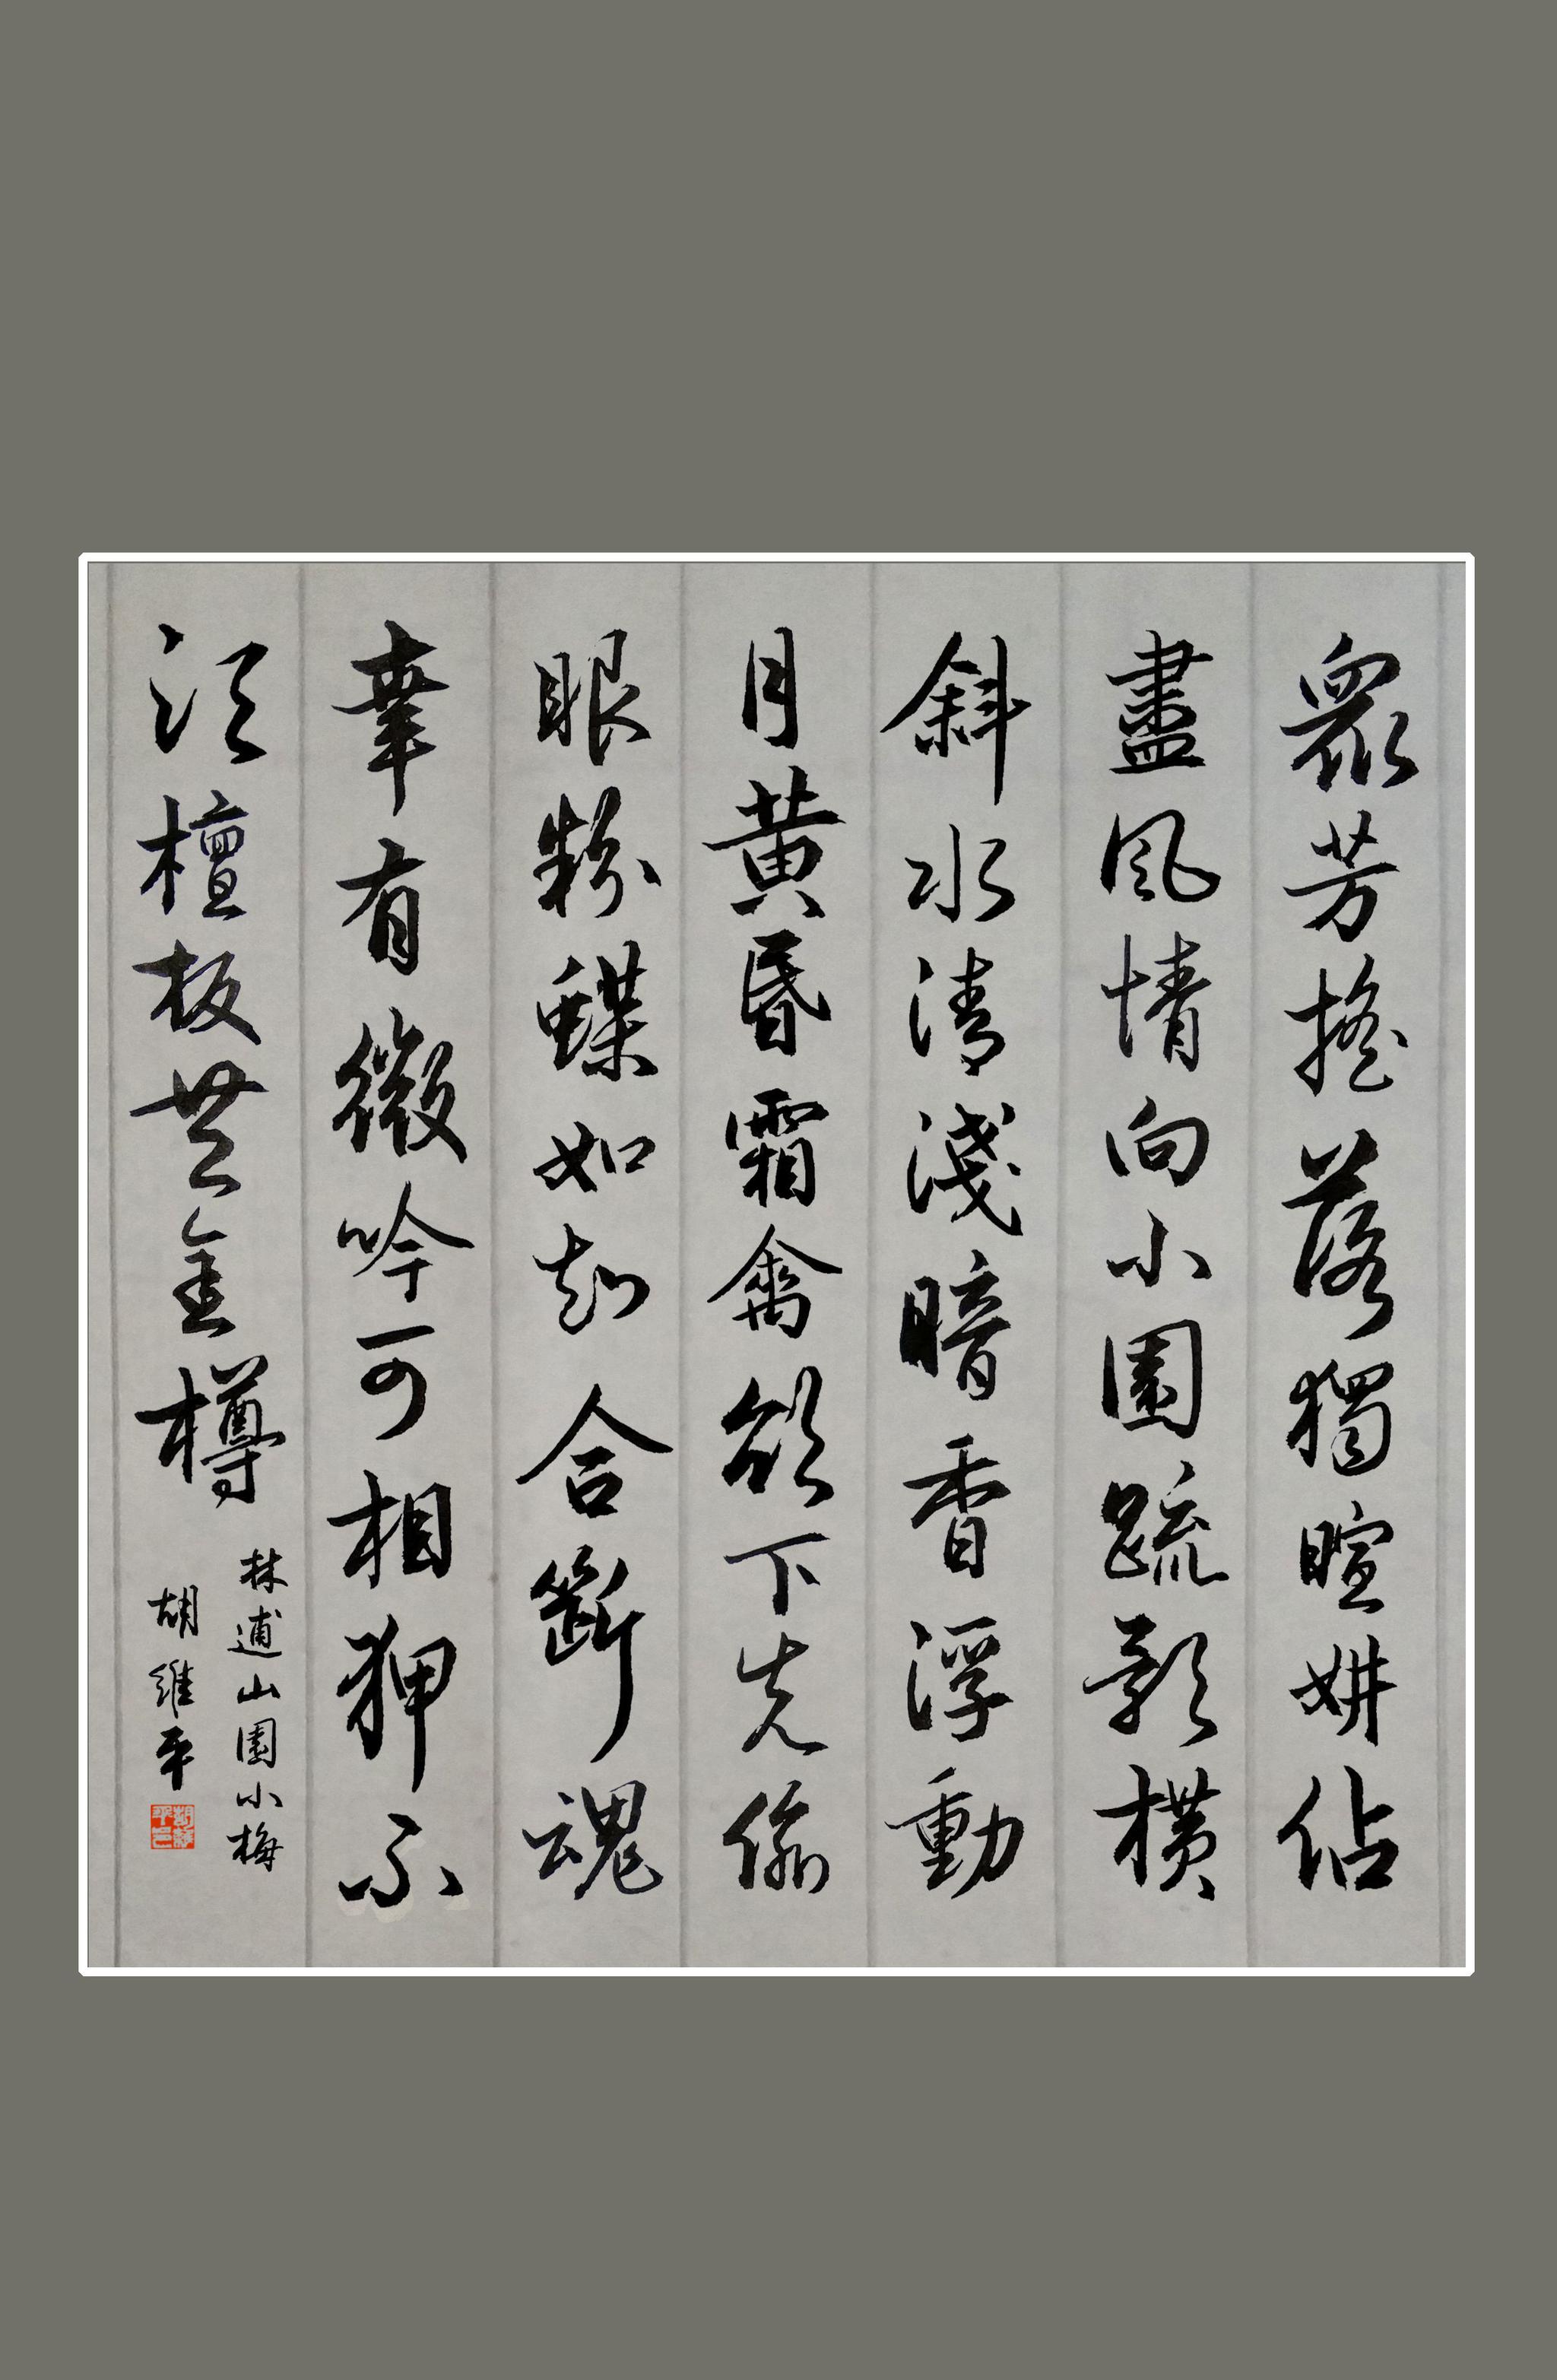 眾芳搖落獨暄妍佔
盡風情向小園疏影橫
斜水清淺暗香浮動
月黃昏霜禽欲下先偷
眼粉蝶如知合斷魂
幸有微吟可相狎不
須檀板共金樽
林逋山園小梅
胡維平